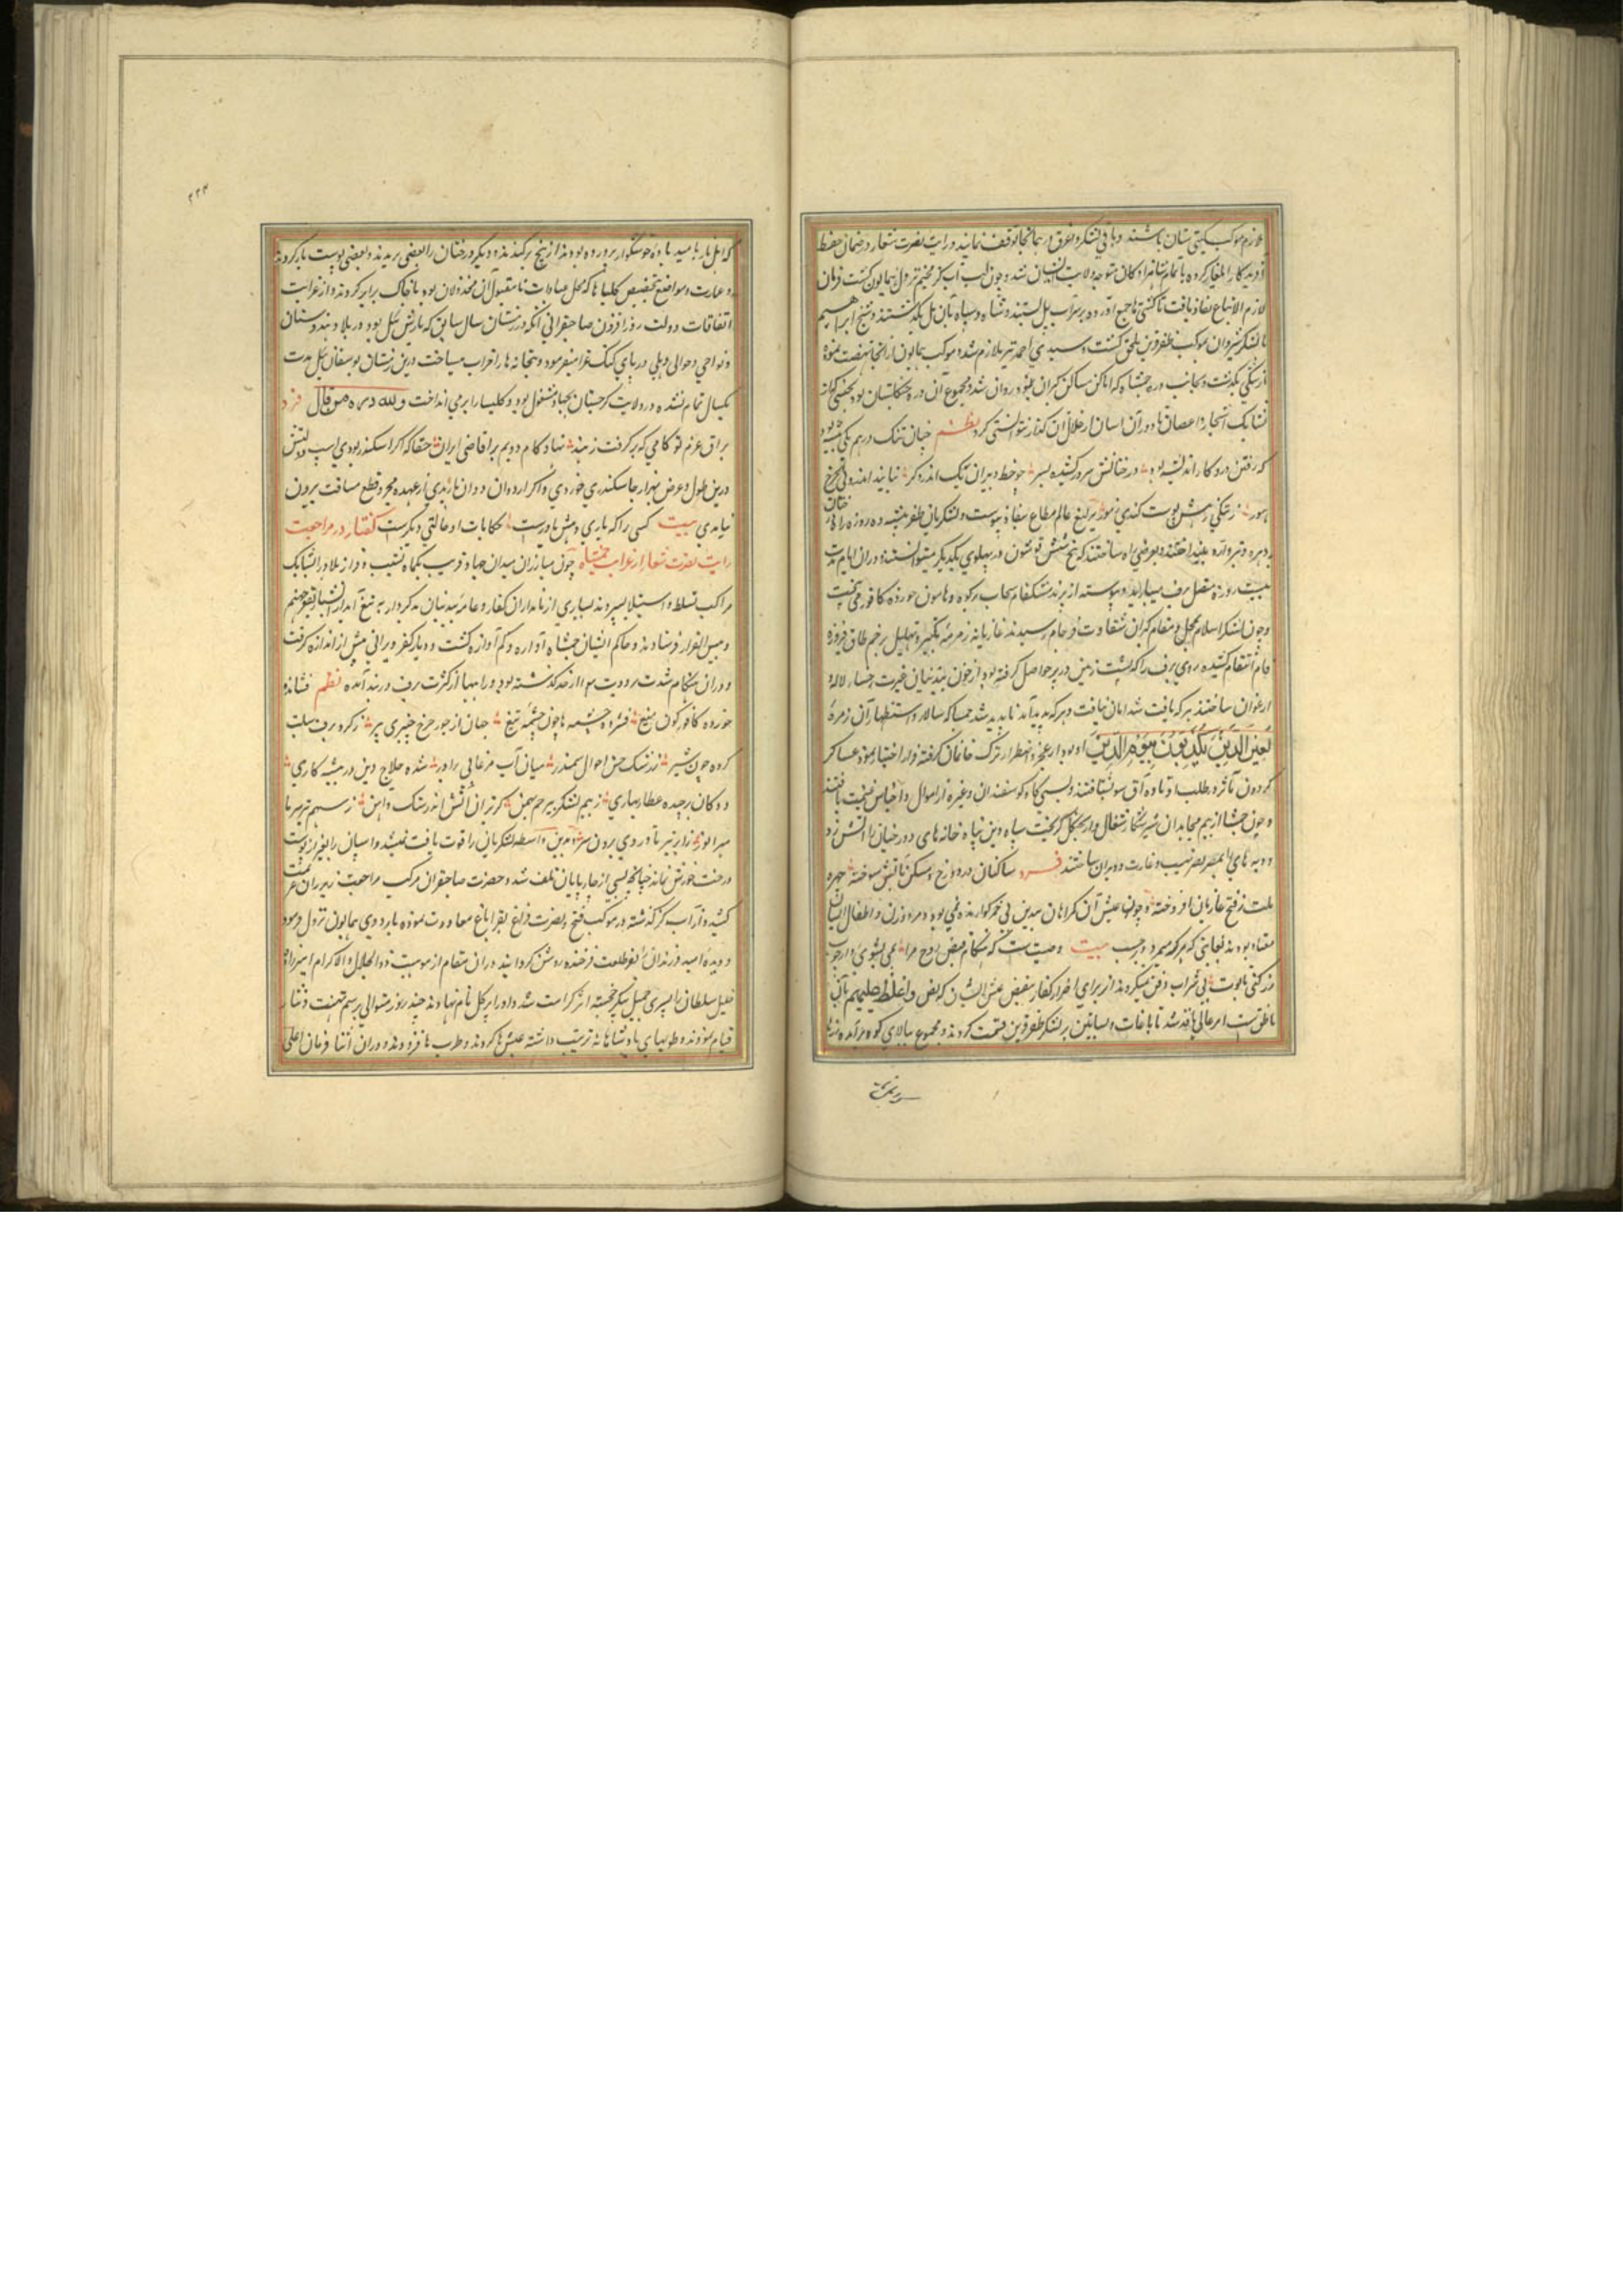 ملازم موکب کیتی ستان باشند و باقی لشکر و اغرق در همانجا توقف نمایند و رایت نصرت شعار در ضمان حفظ
آفریدکار ایلغار کرده با تمام شاهزادکان متوجه ولایت ایشان شد و چون لب آب کر مخیم نزول همایون کشت فرمان
لازم الاتباع نفاذ یافت تا کشتی ها جمع آورده بر سر آب پل بستند و شاه و سپاه بآن پل بکذشتند و شیخ ابراهیم
با لشکر شروان بموکب ظفر قرین ملحق کشت و سیدی احمد نیز ملازم شد و موکب همایون از انجا نهضت نموده
از شکی بکذشت و بجانب دره خمشاه که اماکن و مساکن کبران بود روان شد و مجموع آن دره جنکلستان بود بحیثی که از
تشابک اشجار و اعصان باد در آن اسان از خلال آن کذار نتوانستی کرد نظم چنان تنک درهم یکی بیشه بود
که رفتن درو کار اندیشه بود درختانش سر در کشیده بسر چو خط دبیران یک اندر دکر نتابید اندرو از چرخ
هور ز تنکی رهش پوست کندی ز مور یرلیغ عالم مطاع بنفاذ پیوست و لشکریان ظفر پیشه ده روزه راه درختان
بدهره و تبر و اره بینداختند و بعرضی راه ساختند که پنج شش قوشون در پهلوی یکدیکر میتوانستند و دران ایام مدت
بیست روز متصل برف میبارید و پیوسته از پرند مشکفام سحاب بر کوه و هامون خورده کافور می بیخت
و چون لشکر اسلام بمحل و مقام کبران شقاوت فرجام رسیدند غازیانه زمزمه تکبیر و تهلیل بر خم طاق فیروزه
فام انتقام کشیده روی برف را که پشت زمین در بر حواصل کرفته بود از خون بیدینان غیرت رخسار لاله و
ارغوان ساختند هر که یافت شد امان نیافت و هر که پدید آمد ناپدید شد خمشا که سالار و استظهار آن زمره
لعین الذین یکذبون بیوم الدین او بود از عجز و اضطرار ترک خانمان کرفته فرار اختیار نمود عساکر
کردون مآثر در طلب او تا دره آق سو بشتافتند و بسی کاو و کوسفندان و غیره از اموال و اجناس غنیمت یافتند
و چون خمشا از بیم مجاهدان شیر شکار شغال وار بجنکل کریخت سپاه دین پناه خانه های دوزخیان را آتش زده
و دیه های بصرصر نهیب و غارت ویران ساختند فرد ساکنان در دوزخ و مسکن بآتش سوخته چهره
ملت ز فتح غازیان افروخته و چون عیش آن کمراهان بیدین بی خمر کوارنده نمی بود و مرد و زن و اطفال ایشان
معتاد بودند بغایتی که هر که میمیرد بموجب بیت وصیت ست که هنکام قبض روح مرا بمی بشوی و از چوب
رز کنی تابوت بی شراب دفن نمیکردند از برای اضرار کفار بنقیض عیش ایشان که نص و اغلظ علیهم بآن
ناطق ست امر عالی نافذ شد تا باغات و بساتین بر لشکر ظفر قرین قسمت کردند و مجموع ببالای کوه برآمده رزها
که اهل نار بامید باده خوشکوار پرورده بودند از بیخ برکندند و دیکر درختان را بعضی بریدند و بعضی پوست باز کردند
و عمارت و مواضع بتخصیص کلیساها که محل عبادات نامقبول آن مخذولان بود با خاک برابر کردند و از غرایب
اتفاقات دولت روزافزون صاحبقرانی آنکه در زمستان سال سابق که بارش ئیل بود در بلاد هندوستان
و نواحی و حوالی دهلی و دریای کنک غزا میفرمود و بتخانه ها را خراب میساخت درین زمستان توسقان ئیل مدت
یکسال تمام نشده در ولایت کرجستان بجهاد مشغول بود و کلیسا را برمی انداخت ولله دره من قال فرد
براق عزم تو کامی که برکرفت ز هند نهاد کام دویم بر اقاصی ایران حقا که اکر اسکندر بودی اسب دولتش
درین طول و عرض هزار جا سکندری خوردی و اکر اردوان دوان ماندی از عهده مجرد قطع مسافت بیرون
نیامدی بیت کسی را که یاری دهش یاورست حکایات او حالتی دیکرست کفتار در مراجعت
رایت نصرت شعار از غزای خمشاه چون مبارزان میدان جهاد قریب یکماه نشیب و فراز بلاد ایشان
مراکب تسلط و استیلا سپردند بسیاری از نامداران کفار و عامه بیدینان بدکردار به تیغ آبدار بقعر جهنم
و بیس القرار فرستادند و حاکم ایشان خمشاه آواره و کم آوازه کشت و دیار کفر ویرانی بیش از اندازه کرفت
و دران هنکام شدت برودت هوا از حد کذشته بود و راهها از کثرت برف در بند آمده نظم فشانده
خورده کافور کون میغ فسرده چشمه ها چون چشمه تیغ جهان از جور چرخ چنبری پیر ز کره برف سبلت
کرده چون شیر ز رشک خز احوال سمندر میان آب مرغابی بر آذر شده حلاج دین در پیشه کاری
دوکان برچیده عطار بهاری ز بیم لشکر بیرحم بهمن کریزان آتش اندر سنک و آهن ز سهم تیر سرما
سرا نور نیارد تیر تا در روی برون سر بدین واسطه لشکریان را قوت یافت نمیشد و اسپان را بغیر از پوست
درخت خورش نماند چنانچه بسی از چارپایان تلف شد و حضرت صاحبقران مرکب مراجعت زیر ران عزیمت
کشید و از آب کر کذشته در موکب فتح و نصرت فراغ بقراباغ معاودت نموده باردوی همایون نزول فرمود
و دیده امید فرزندان بنور طلعت فرخنده روشن کردانید و دران مقام از موهبت ذو الجلال و الاکرام امیرزاده
خلیل سلطان را پسری جمیل پیکر خجسته اثر کرامت شد و او را برکل نام نهادند چند روز متوالی برسم تهنیت و نثار
قیام نمودند و طویهای پادشاهانه ترتیب داشته عیش ها کردند و طرب ها فزودند و دران اثنا فرمان اعلی